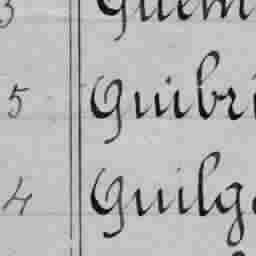 3 Guém
5 Guibri
4 Guilg